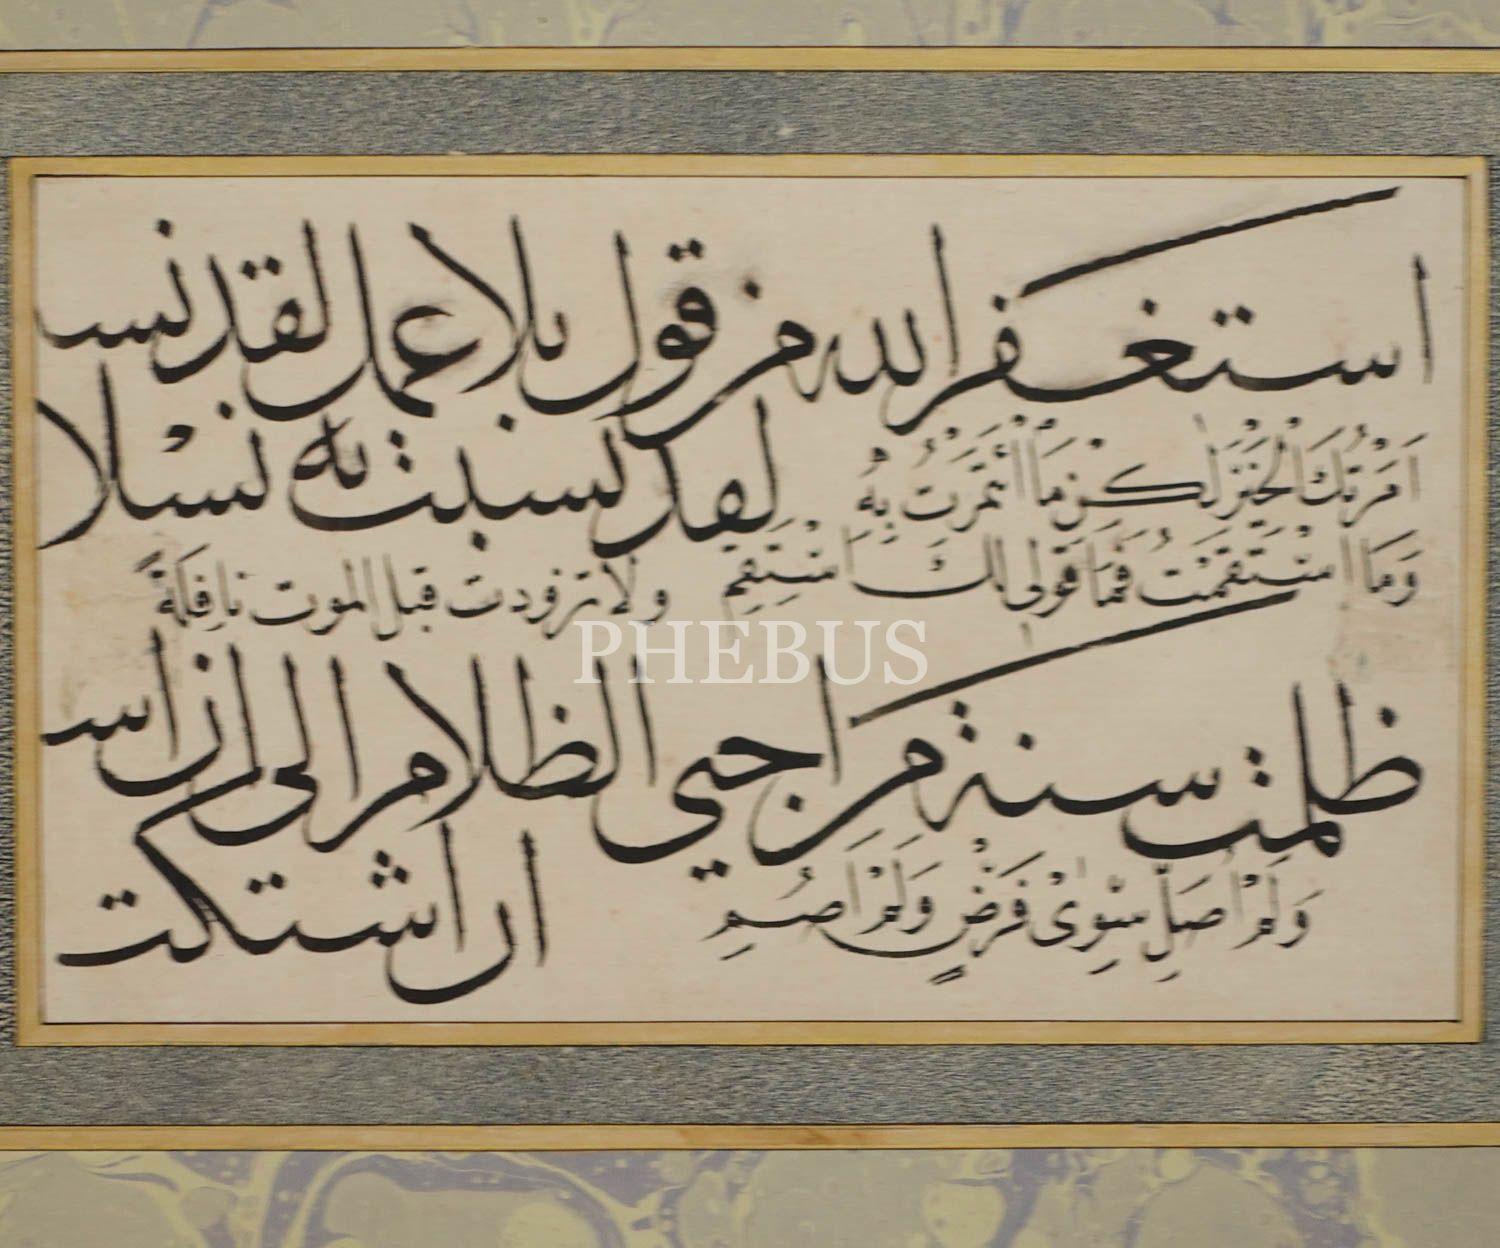 استغفر الله من قول بلا عمل لقد نسـ
لقد نسبت به نسلا
اَمَرْتُكَ الْخَيْرَ لٰكِنْ مَا ائْتَمَرْتُ بِهُ
وَمَا اسْتَقَمْتُ فَمَا قَوْلِى لَكَ اسْتَقِمِ
ولا تزودت قبل الموت نافِلَةً
ظلمت سنة من احيى الظلام الى ان اسـ
ان اشتكت
وَلَمْ اُصَلِّ سِوٰى فَرْضٍ وَلَمْ اَصُمِ
PHEBUS